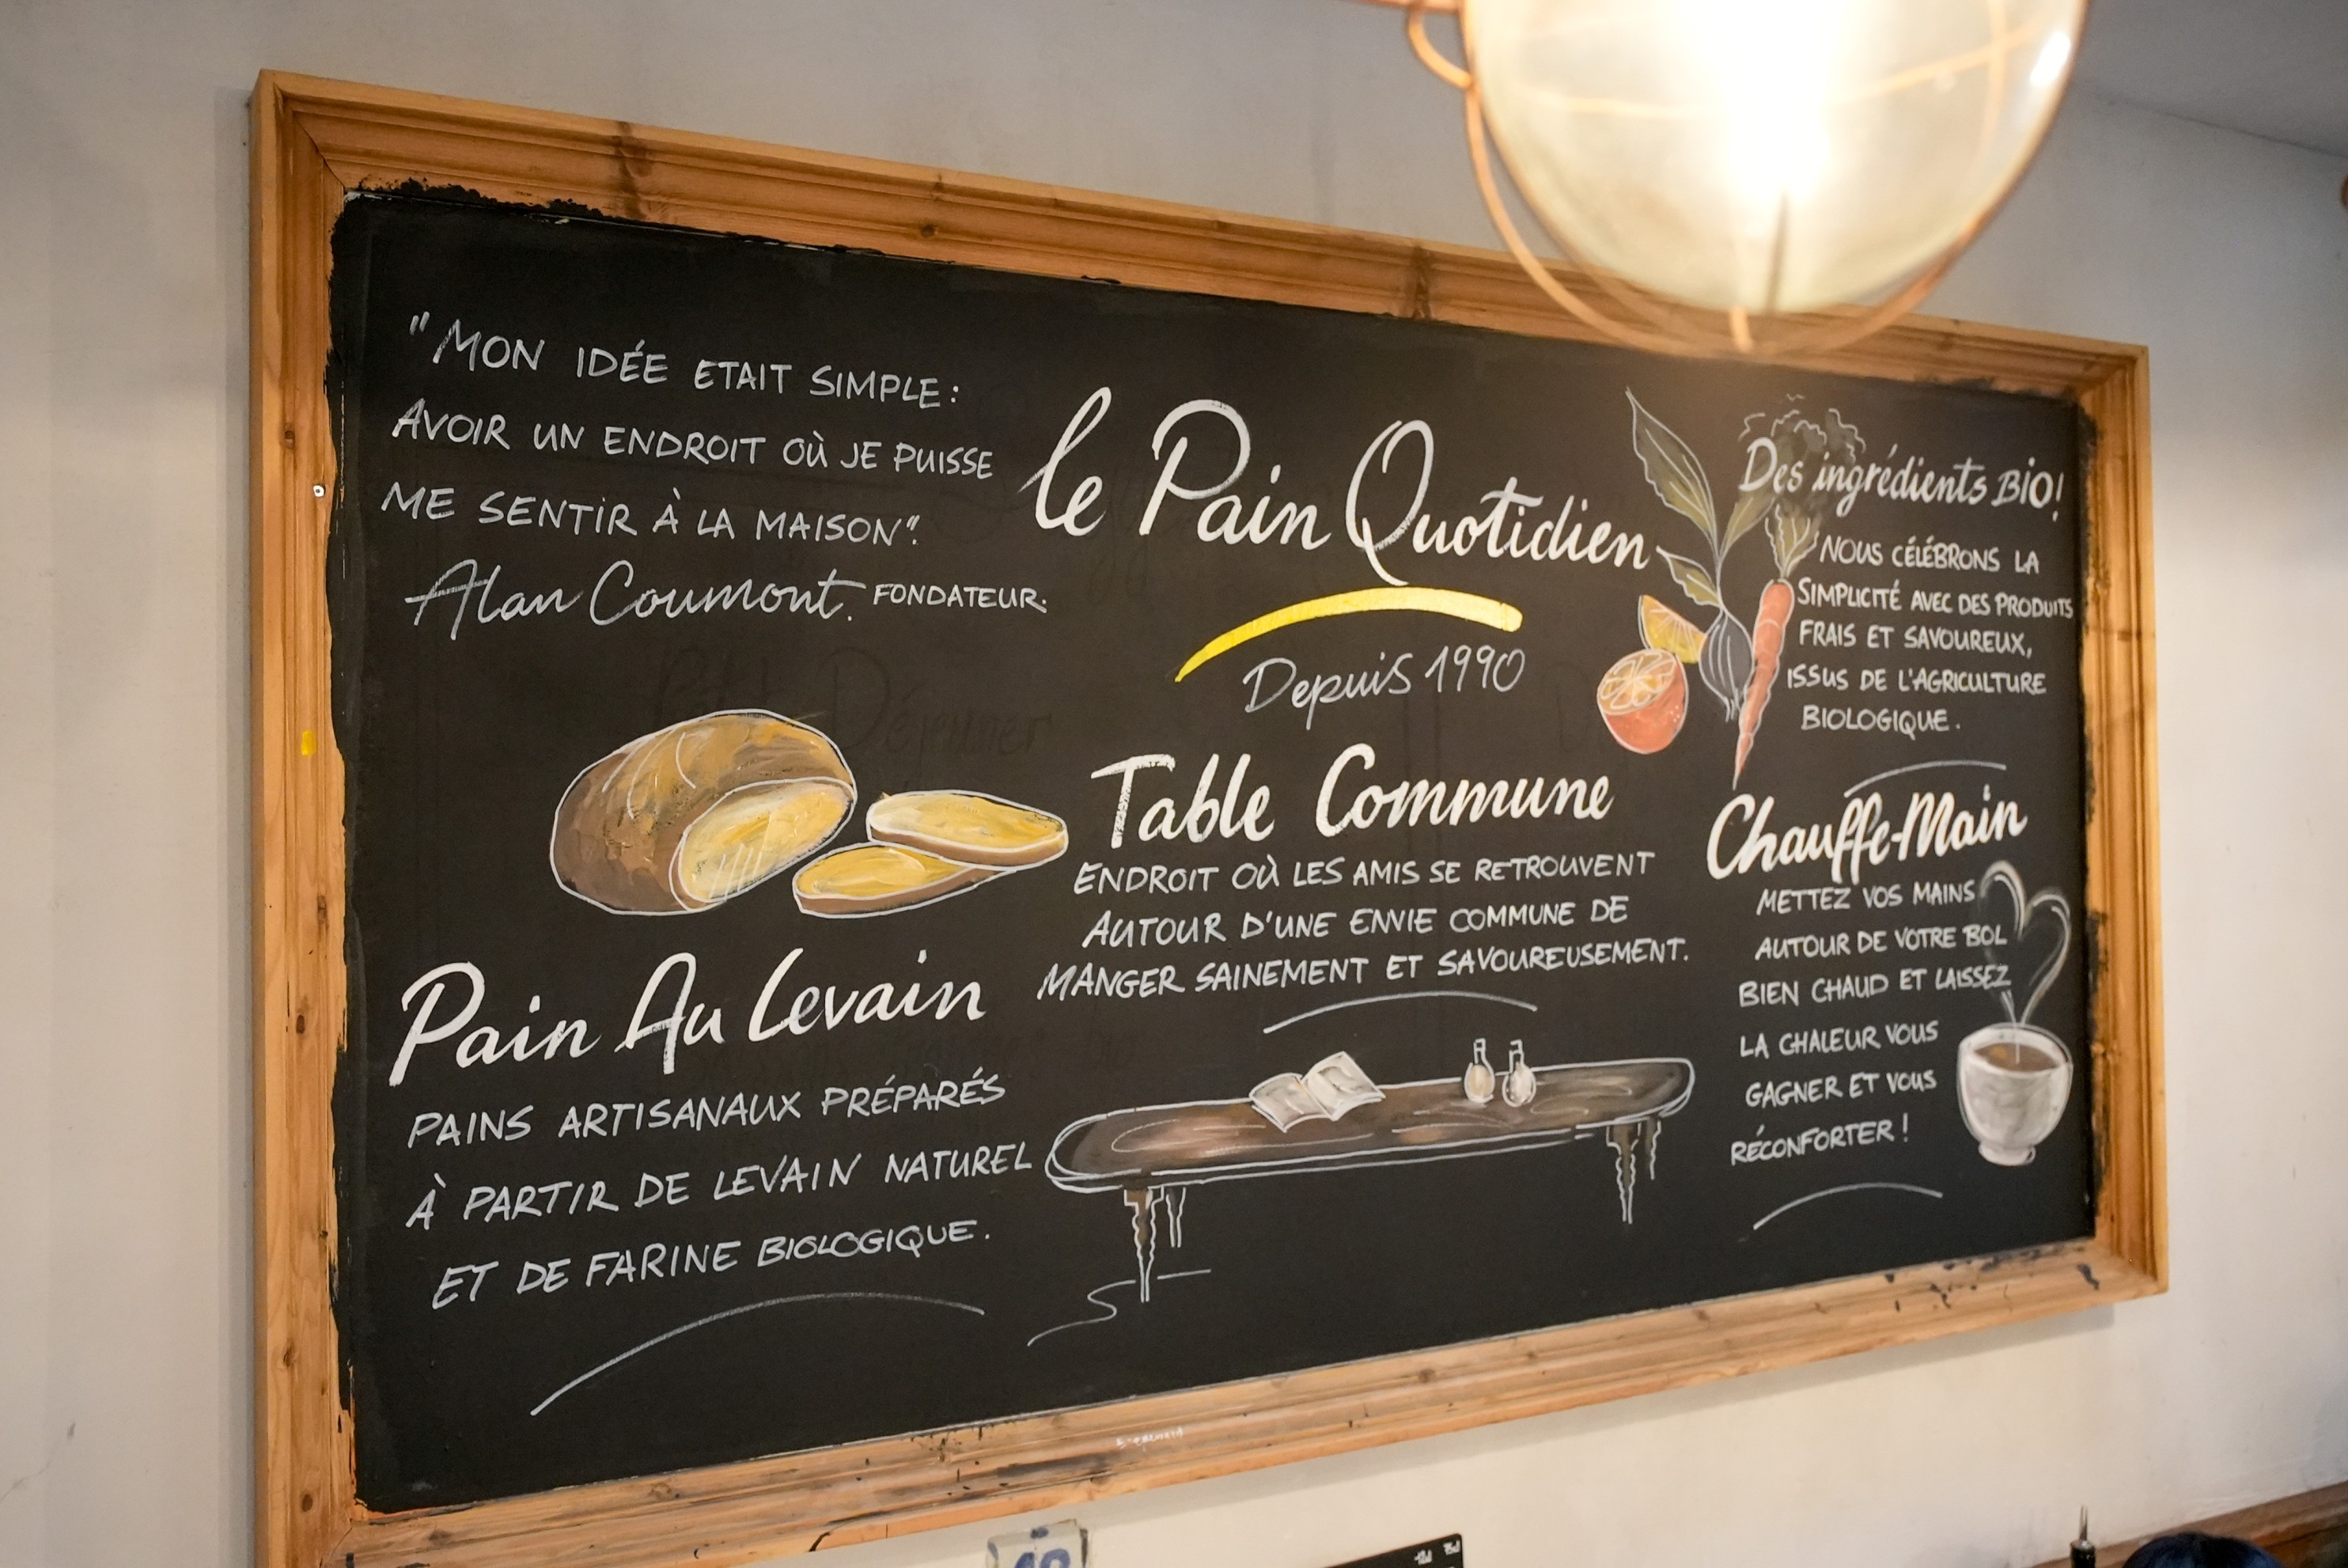 "MON IDÉE ETAIT SIMPLE:
AVOIR UN ENDROIT OÙ JE PUISSE
ME SENTIR À LA MAISON".
Alan Coumont. FONDATEUR.
Pain Au Levain
PAINS ARTISANAUX PRÉPARÉS
À PARTIR DE LEVAIN NATUREL
ET DE FARINE BIOLOGIQUE.
le Pain Quotidien
Depuis 1990
Table Commune
ENDROIT OÙ LES AMIS SE RETROUVENT
AUTOUR D'UNE ENVIE COMMUNE DE
MANGER SAINEMENT ET SAVOUREUSEMENT.
Des ingrédients BIO!
NOUS CÉLÉBRONS LA
SIMPLICITÉ AVEC DES PRODUITS
FRAIS ET SAVOUREUX,
ISSUS DE L'AGRICULTURE
BIOLOGIQUE.
Chauffe-Main
METTEZ VOS MAINS
AUTOUR DE VOTRE BOL
BIEN CHAUD ET LAISSEZ
LA CHALEUR VOUS
GAGNER ET VOUS
RÉCONFORTER!